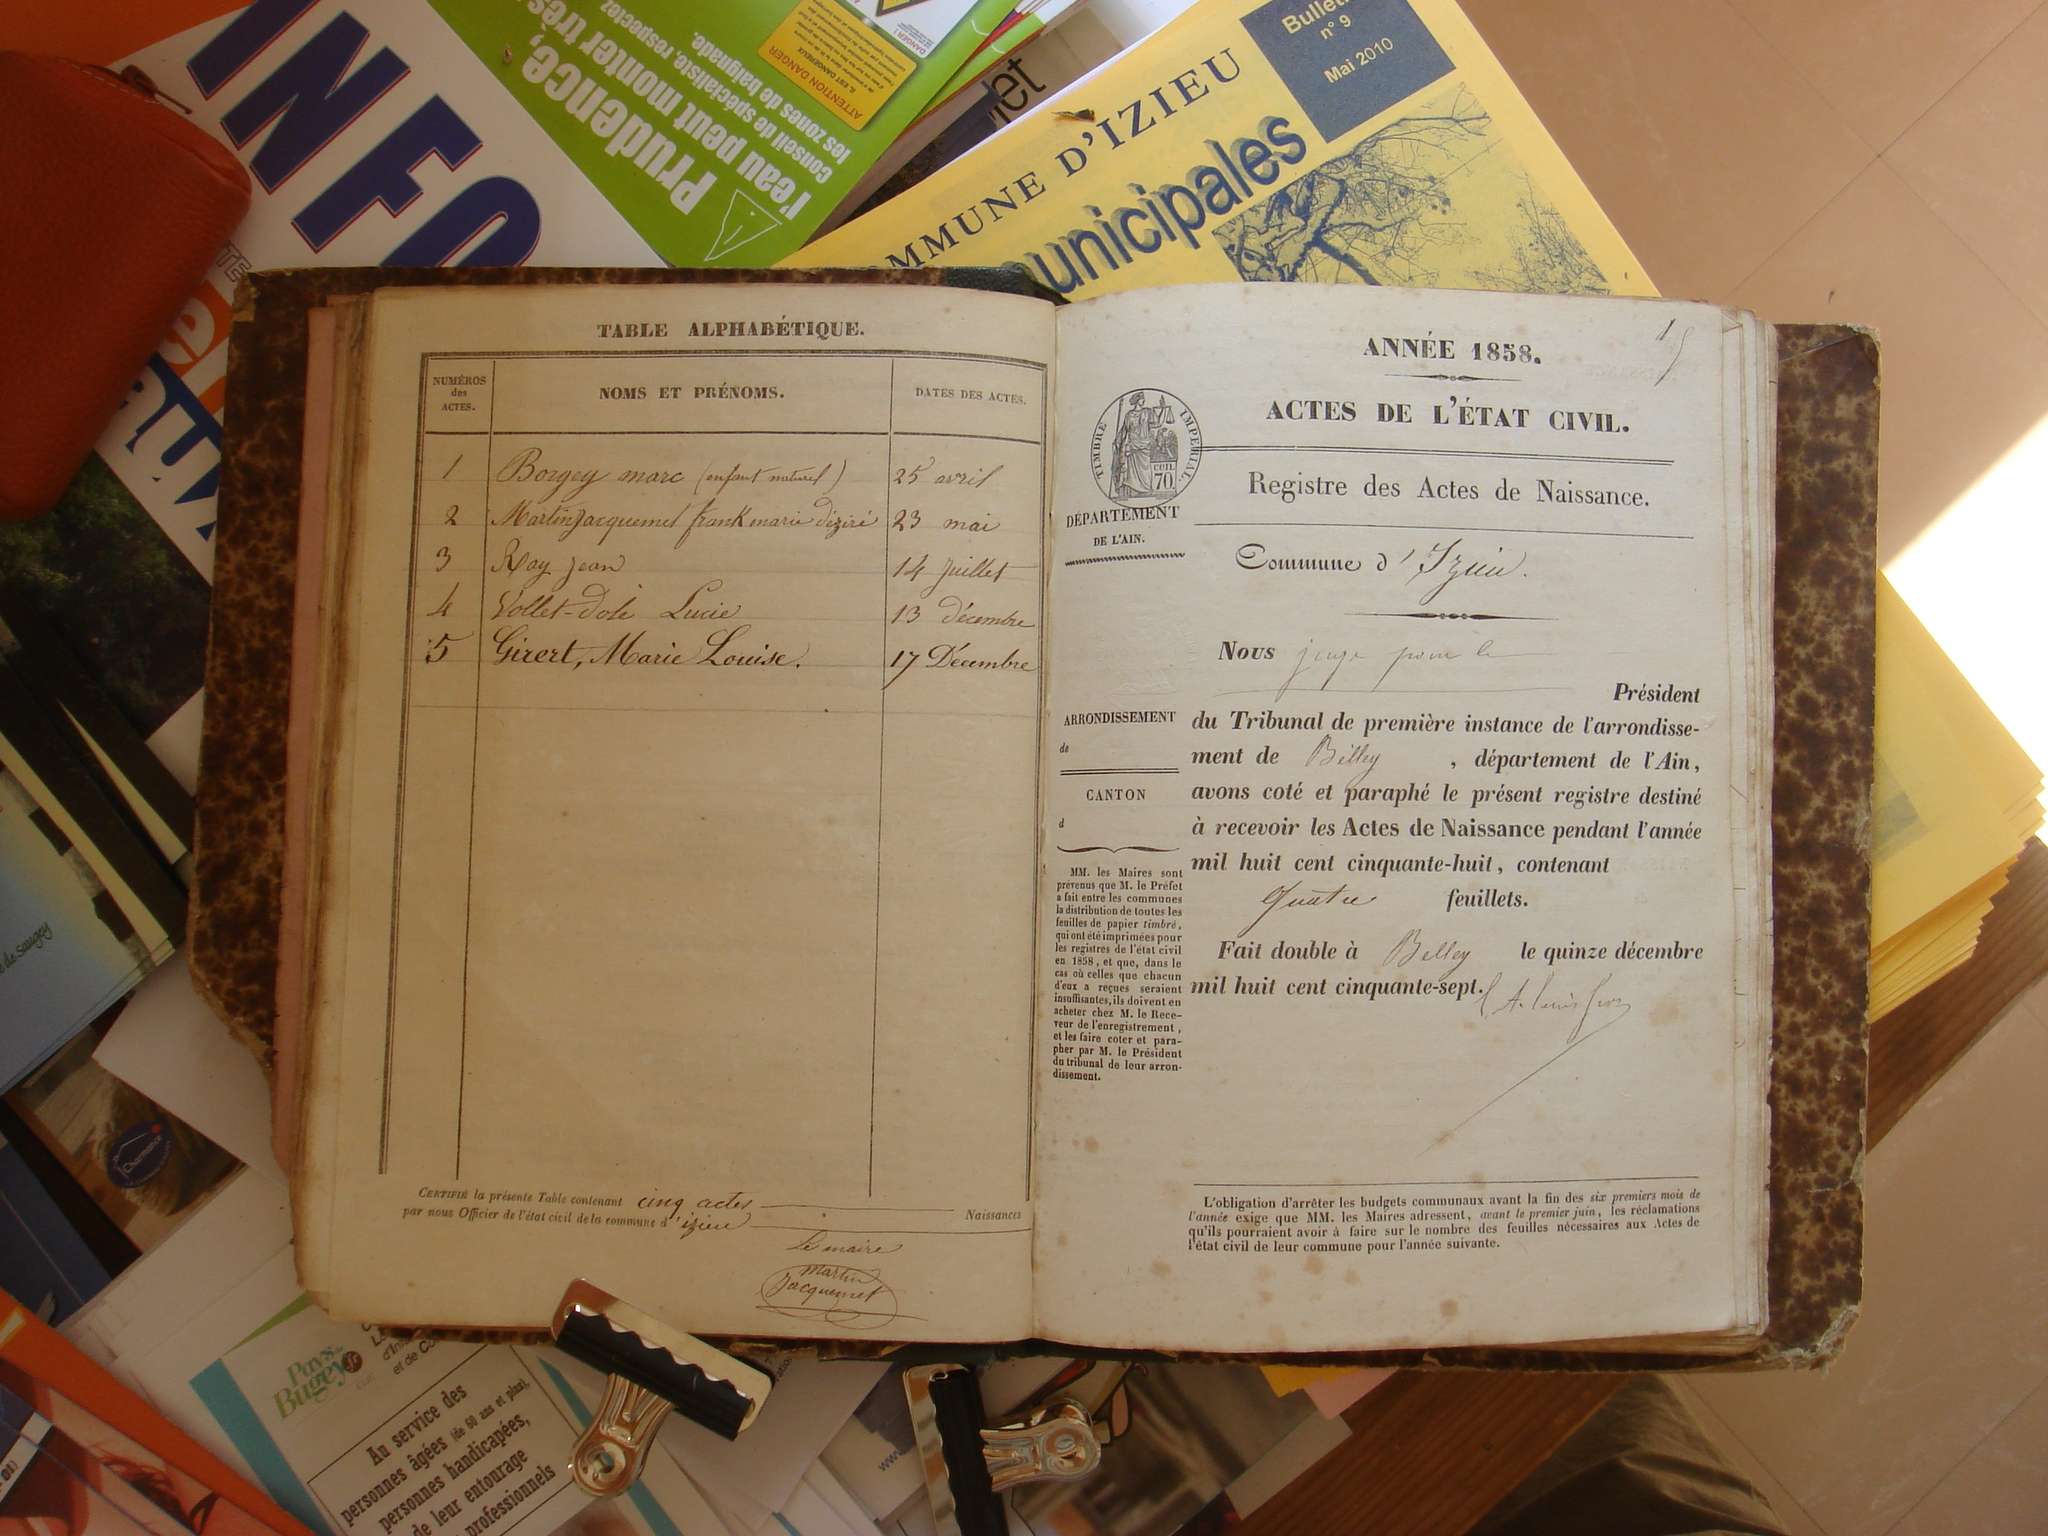 INFO
Prudence,
l'eau peut monter très
conseil de spécialiste, respectez
les zones de baignade.
ATTENTION DANGER
Bulletin
n° 9
Mai 2010
COMMUNE D'IZIEU
municipales
TABLE ALPHABÉTIQUE.
NUMÉROS
des
ACTES.
NOMS ET PRÉNOMS.
DATES DES ACTES.
1 Borgey marc (enfant naturel) 25 avril
2 Martin Jacquemet frank marie diziré 23 mai
3 Roy jean 14 Juillet
4 Vollet-dole Lucie 13 décembre
5 Girert, Marie Louise. 17 Décembre
CERTIFIÉ la présente Table contenant cinq actes Naissances
par nous Officier de l'état civil de la commune d'izieu
Le maire
martin
Jacquemet
ANNÉE 1858.
ACTES DE L'ÉTAT CIVIL.
TIMBRE IMPERIAL.
cen.
70.
Registre des Actes de Naissance.
DÉPARTEMENT
DE L'AIN.
Commune d'Izieu.
Nous juge pour le
Président
du Tribunal de première instance de l'arrondisse-
ment de Belley, département de l'Ain,
avons coté et paraphé le présent registre destiné
à recevoir les Actes de Naissance pendant l'année
mil huit cent cinquante-huit, contenant
Quatre feuillets.
Fait double à Belley le quinze décembre
mil huit cent cinquante-sept.
ARRONDISSEMENT
de
CANTON
d
MM. les Maires sont
prévenus que M. le Préfet
a fait entre les communes
la distribution de toutes les
feuilles de papier timbré,
qui ont été imprimées pour
les registres de l'état civil
en 1858, et que, dans le
cas où celles que chacun
d'eux a reçues seraient
insuffisantes, ils doivent en
acheter chez M. le Rece-
veur de l'enregistrement,
et les faire coter et para-
pher par M. le Président
du tribunal de leur arron-
dissement.
L'obligation d'arrêter les budgets communaux avant la fin des six premiers mois de
l'année exige que MM. les Maires adressent, avant le premier juin, les réclamations
qu'ils pourraient avoir à faire sur le nombre des feuilles nécessaires aux Actes de
l'état civil de leur commune pour l'année suivante.
Charmance
Pays du
Bugey
Au service des
personnes âgées (de 60 ans et plus),
personnes handicapées,
de leur entourage
professionnels